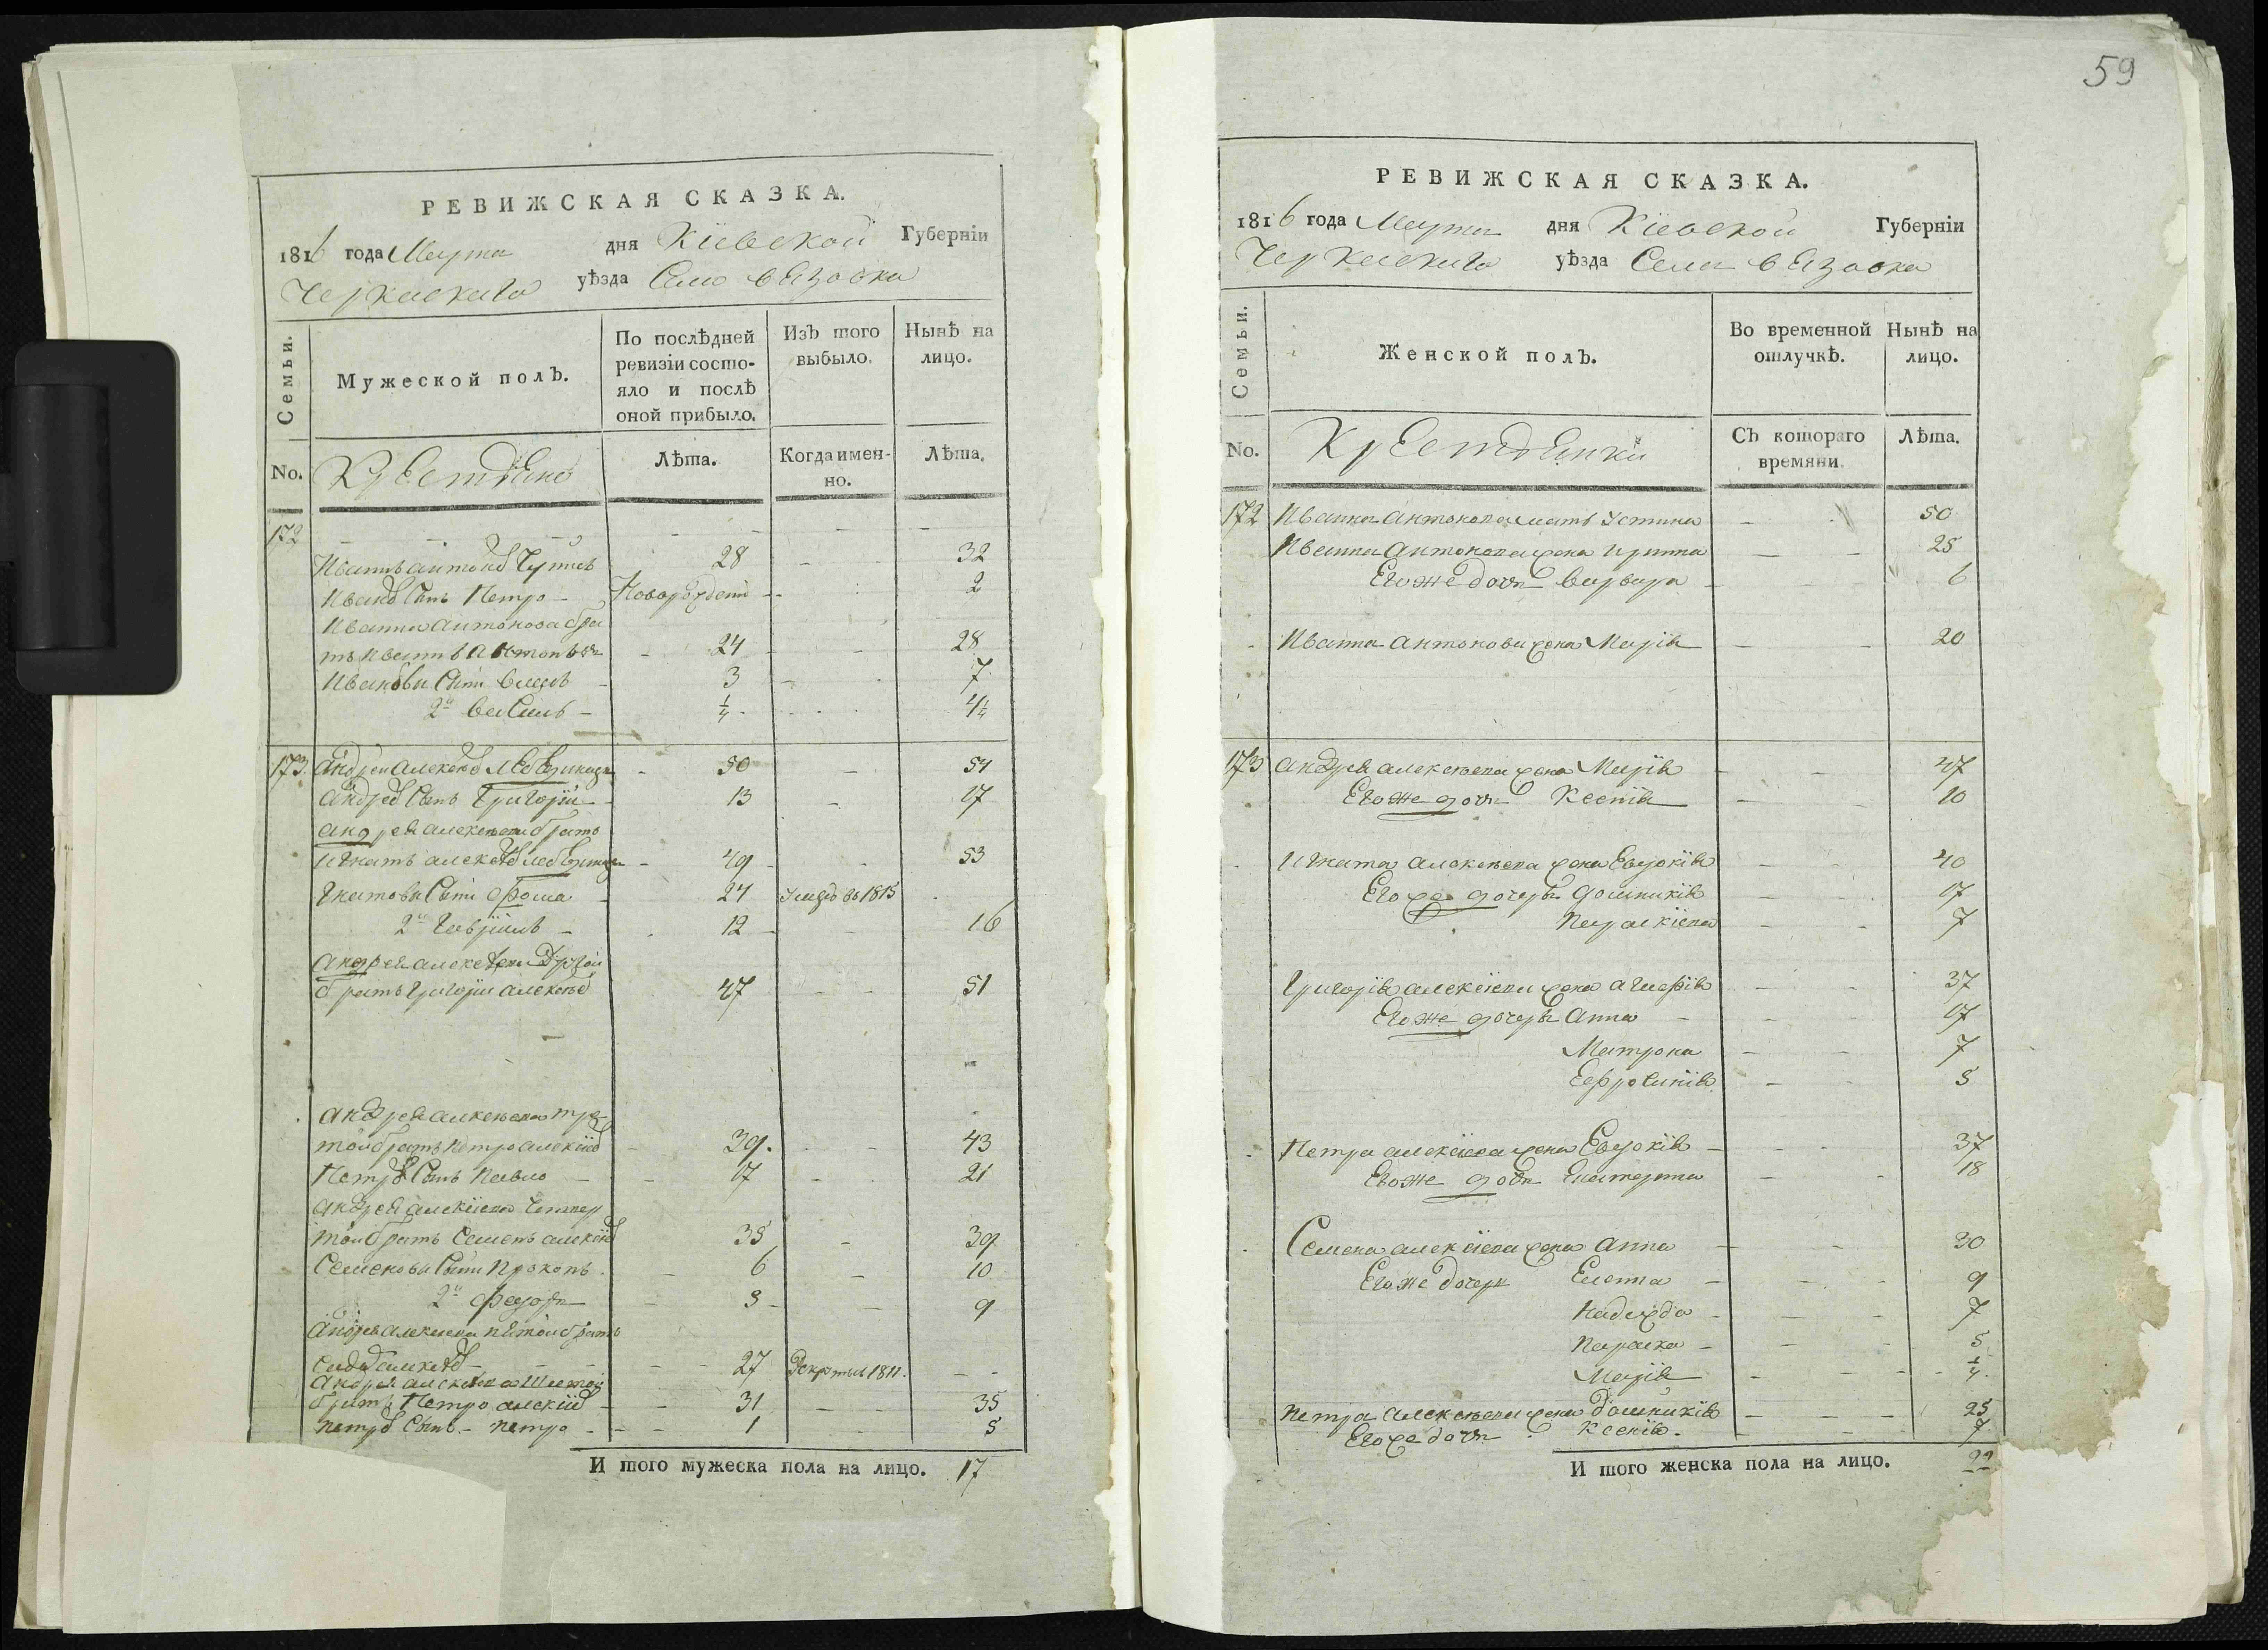 59
РЕВИЖСКАЯ СКАЗКА.
1816 года Марта дня Кіевской Губерніи
Черкаскаго уѣзда Село вязовка
Семьи.
Мужеской полъ.
По послѣдней ревизіи состояло и послѣ оной прибыло.
Изъ того выбыло.
Нынѣ на лицо.
No.
Крестьяне
Лѣта.
Когда имен-
но.
Лѣта.
172
Иванъ антоновъ 28 32
Ивановъ сынъ Петро Новорожденъ 2
Ивана антонова бра
тъ Иванъ Антоновъ 24 28
Ивановы сыни 3 7
2й Василь 1/4 4 1/4
173 андрей алексѣевъ 50 54
андреевъ сынъ Григорій 13 17
андрея алексѣева братъ
Игнатъ алексѣевъ 49 53
Игнатовы сыни Фома 24 умре въ 1815
2й Гавріилъ 12 16
андрея алексѣева другой
братъ Григорій алексѣевъ 47 51
андрея алексѣева тре
той братъ Петро алексіевъ 39 43
Петровъ сынъ Павло 17 21
андрея алексіева четвер
той братъ Семенъ алексіевъ 35 39
Семеновы сыни Прокопъ 6 10
2й Федоръ 5 9
андрея алексѣева пятой братъ
алексѣевъ 27 рекрутъ 1811.
андрея алексѣева шестой
братъ Петро алексіевъ 31 35
Петровъ сынъ Петро 1 5
И того мужеска пола на лицо. 17
РЕВИЖСКАЯ СКАЗКА.
1816 года Марта дня Кіевской Губерніи
Черкаскаго уѣзда Села вязовка
Семьи.
Женской полъ.
Во временной отлучкѣ.
Нынѣ на лицо.
No.
Крестьянки
Съ котораго времяни.
Лѣта.
172 Ивана антонова мать Устина 50
Ивана антонова жена Ирина 25
Его же дочь варвара 6
Ивана антонова жена Марія 20
173 андрея алексѣева жена Марія 47
Его же дочь Ксенія 10
Игната алексѣева жена Евдокія 40
Его же дочеры Домникія 17
Параскіева 7
Григорія алексіева жена агафія 37
Его же дочеры анна 17
Матрона 7
Ефросинія 5
Петра алексіева жена Евдокія 37
Его же дочь Екатерина 18
Семена алексіева жена анна 30
Его же дочери Елена 9
Надежда 7
Параска 5
Марія 1/4
Петра алексѣева жена Домникія 25
Его же дочь Ксенія 7
И того женска пола на лицо. 22